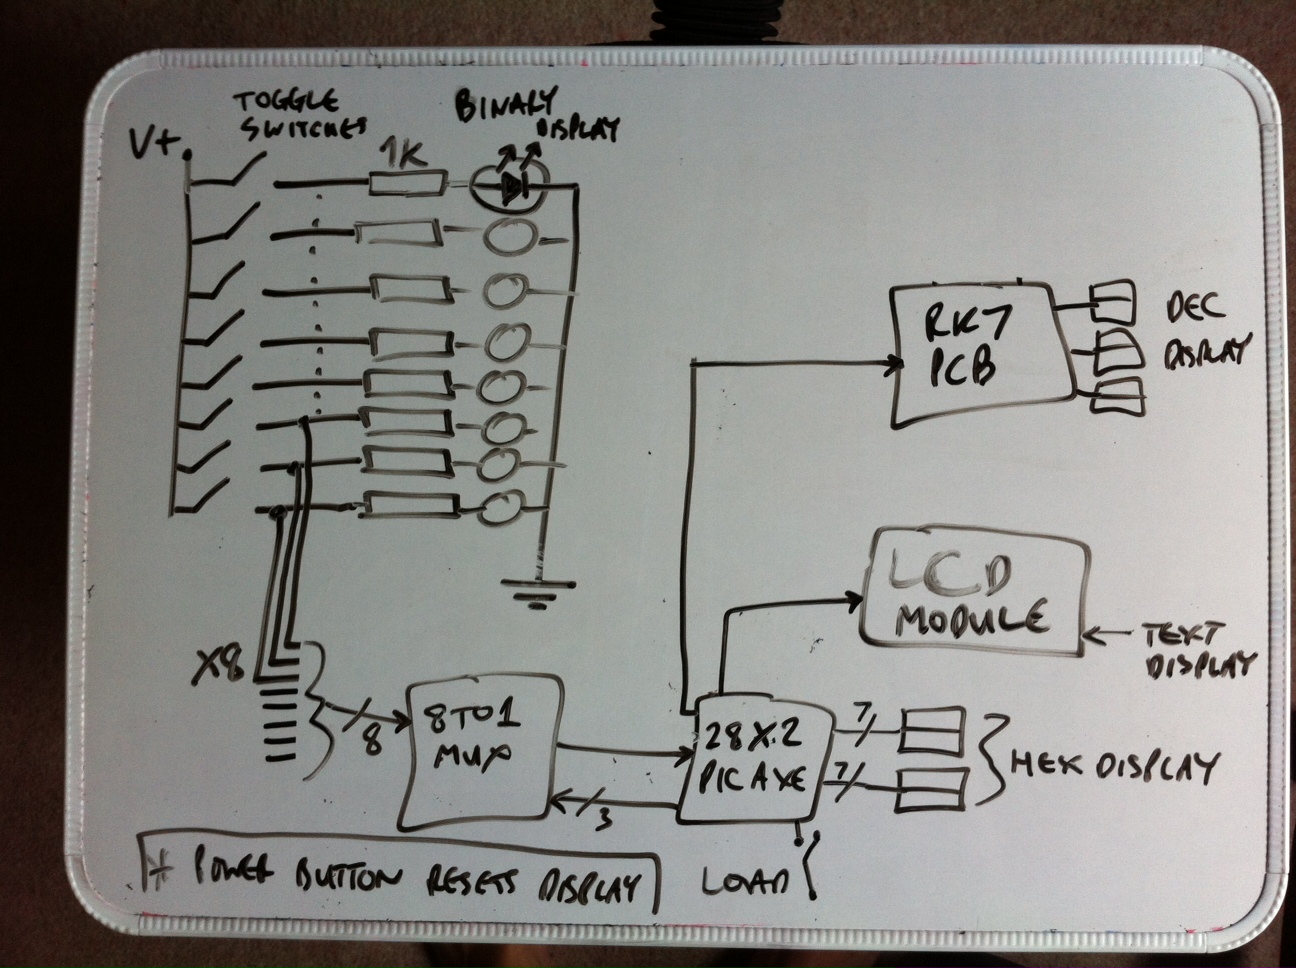 TOGGLE
SWITCHES
BINARY
DISPLAY
V+
1K
RK7
PCB
DEC
DISPLAY
LCD
MODULE
TEXT
DISPLAY
X8
8
8 TO 1
MUX
3
28X2
PICAXE
7
7
HEX DISPLAY
LOAD
* POWER BUTTON RESETS DISPLAY